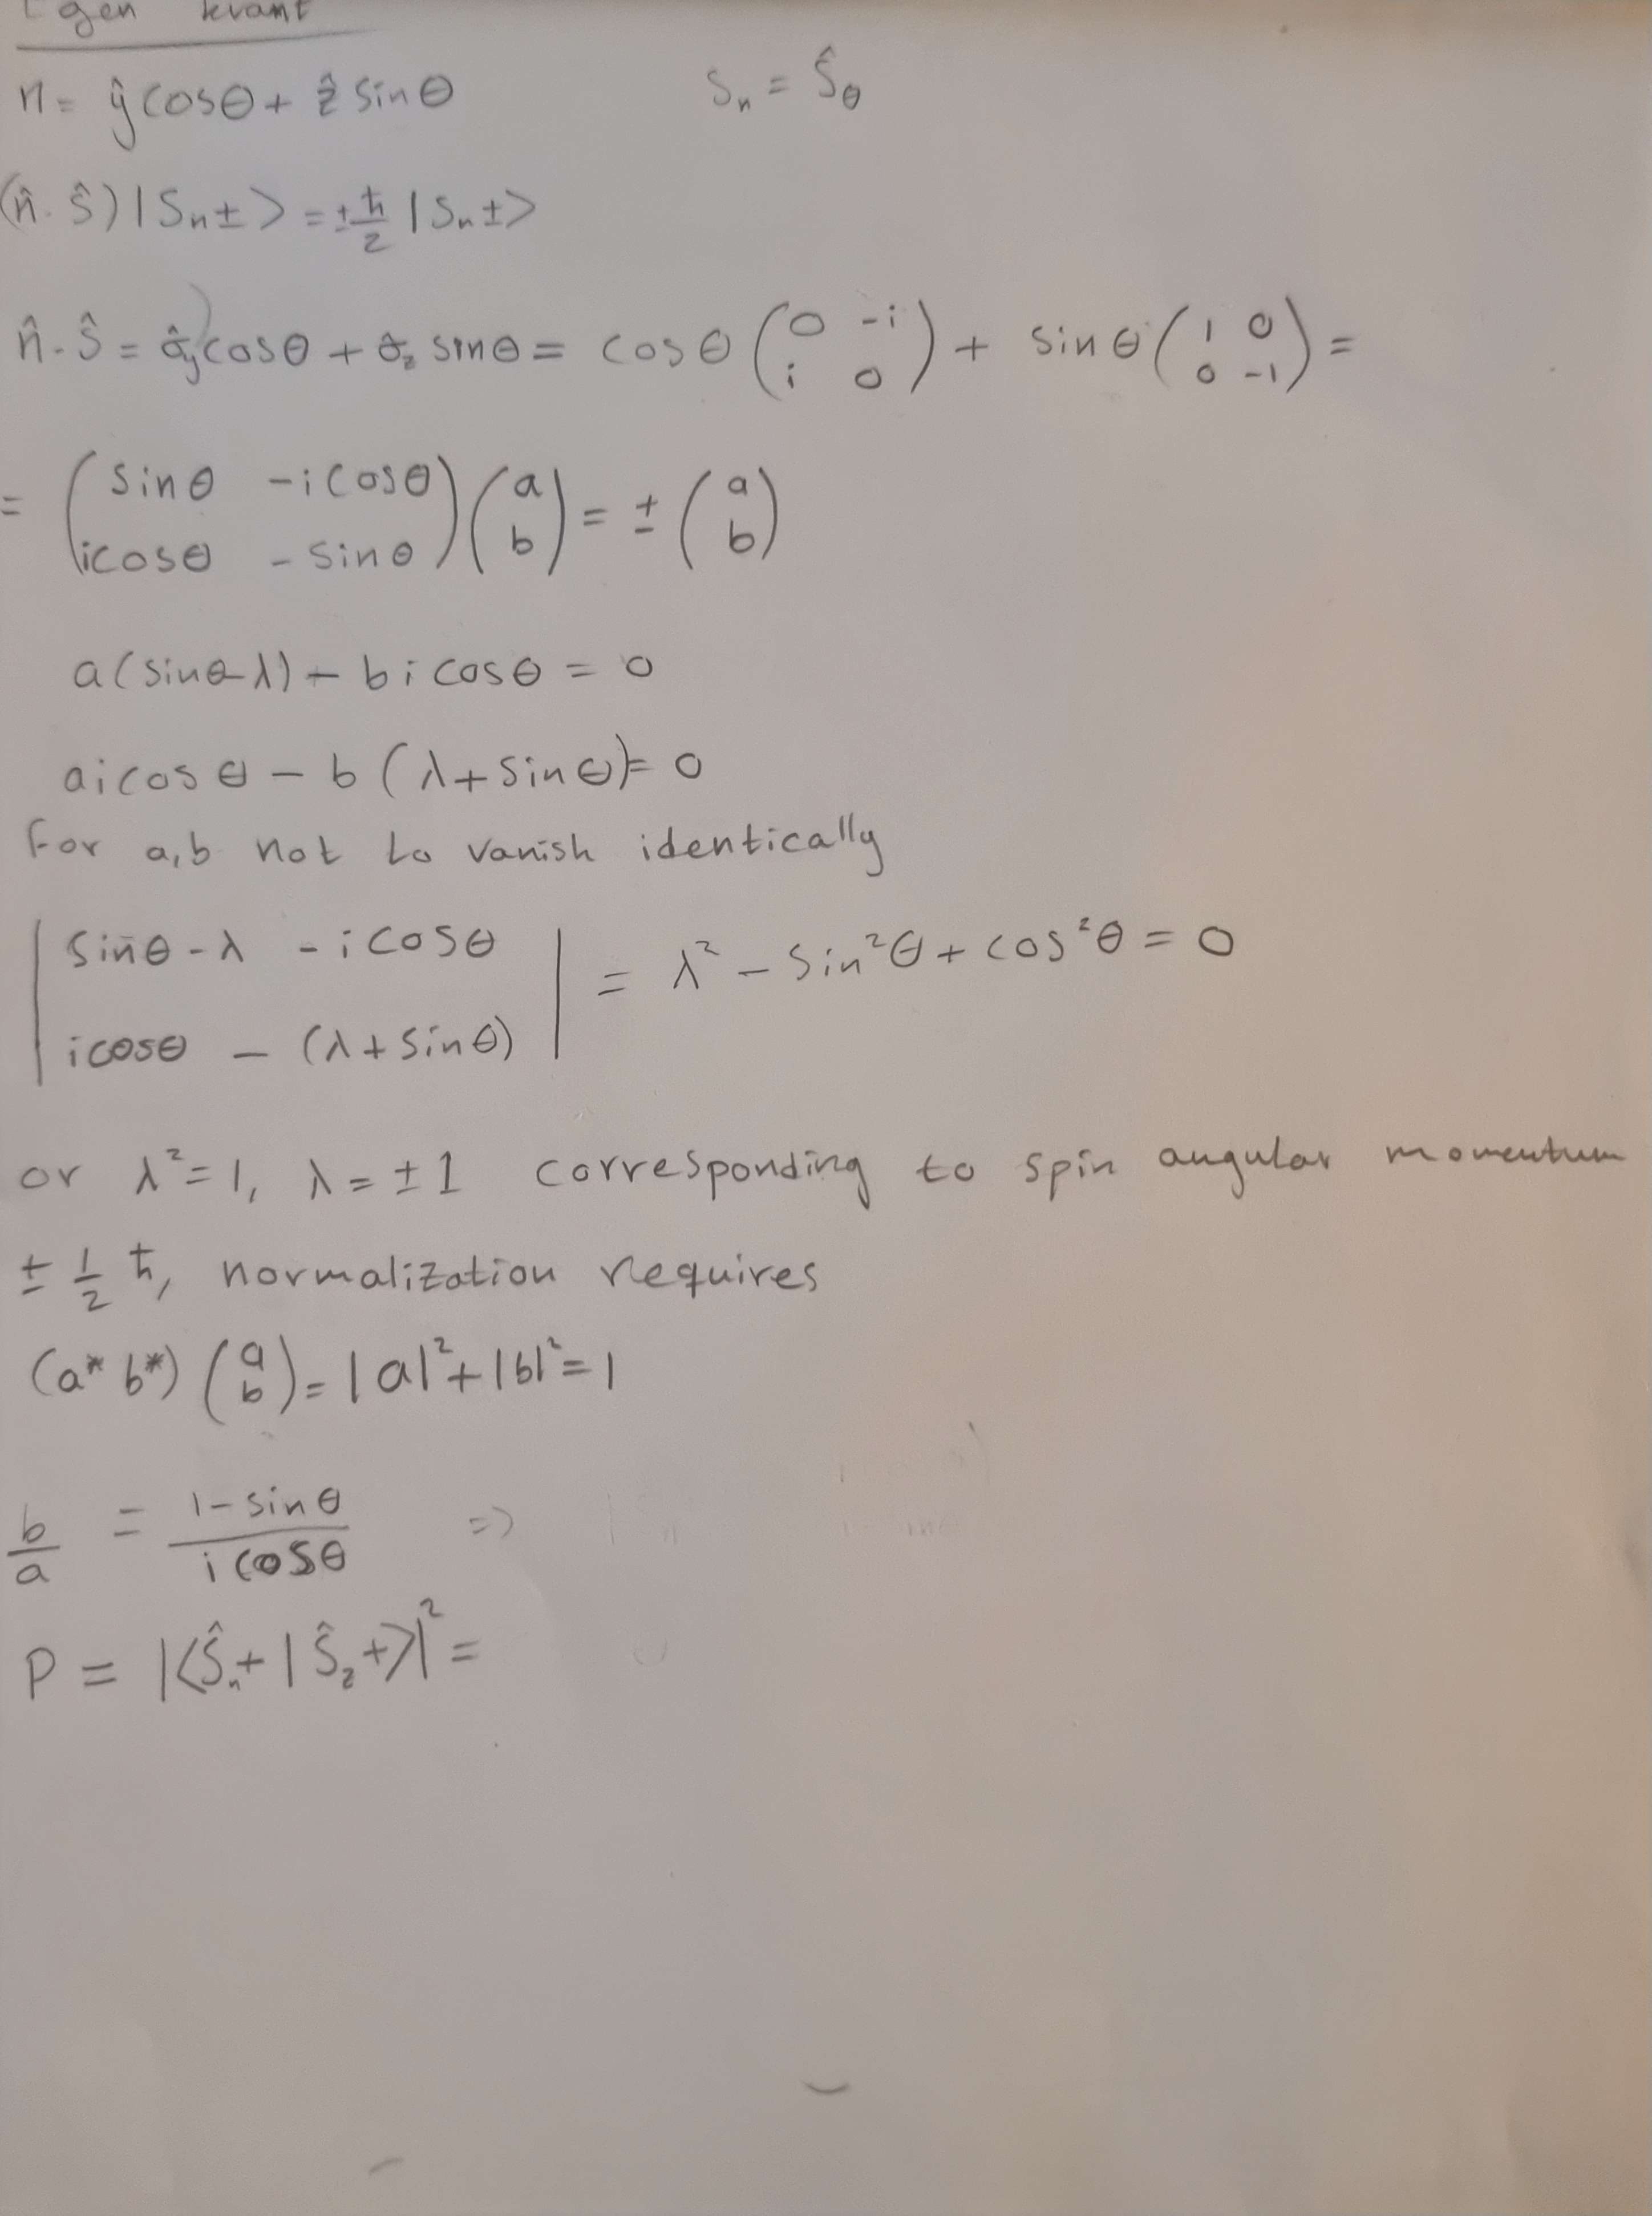 Egen kvant
n = ŷ cosθ + ẑ sinθ Sₙ = Ŝ_θ
(n̂ · Ŝ) | Sₙ ± > = ± ħ/2 | Sₙ ± >
n̂ · Ŝ = σ̂_y cosθ + σ̂_z sinθ = cosθ ( 0 -i ; i 0 ) + sinθ ( 1 0 ; 0 -1 ) =
= ( sinθ -i cosθ ; i cosθ - sinθ ) ( a ; b ) = ± ( a ; b )
a (sinθ-λ) - b i cosθ = 0
a i cosθ - b (λ + sinθ) = 0
For a, b not to vanish identically
| sinθ - λ - i cosθ ; i cosθ - (λ + sinθ) | = λ² - sin²θ + cos²θ = 0
or λ² = 1, λ = ± 1 corresponding to spin angular momentum
± 1/2 ħ, normalization requires
(a* b*) ( a ; b ) = |a|² + |b|² = 1
b/a = (1 - sinθ)/(i cosθ) =>
P = |<Ŝₙ+ | Ŝ_z +>|² =